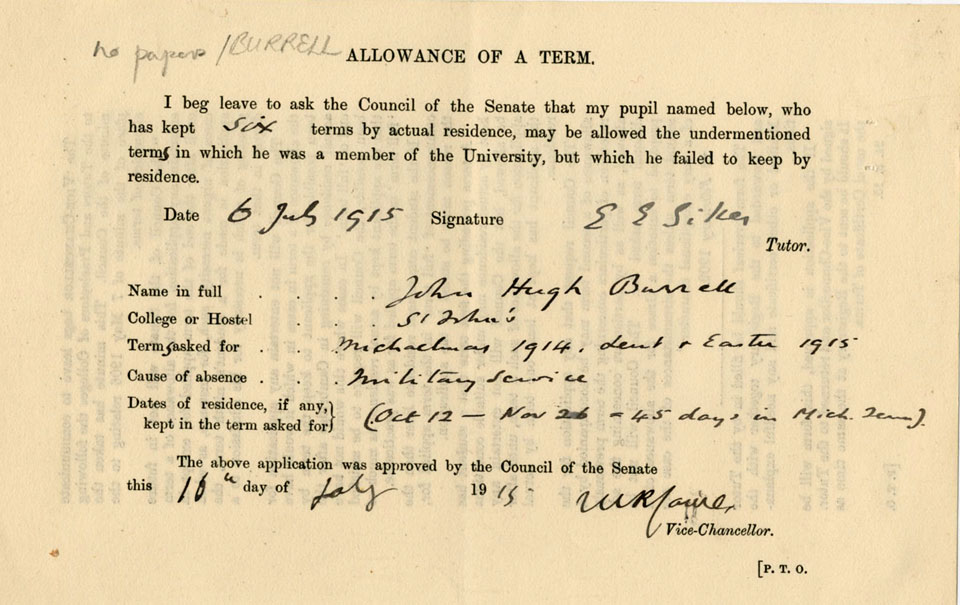 no papers / BURRELL
ALLOWANCE OF A TERM.
I beg leave to ask the Council of the Senate that my pupil named below, who
has kept six terms by actual residence, may be allowed the undermentioned
terms in which he was a member of the University, but which he failed to keep by
residence.
Date 6 July 1915 Signature E E Sikes
Tutor.
Name in full . . . . John Hugh Burrell
College or Hostel . . . St John's
Terms asked for . . . Michaelmas 1914, Lent & Easter 1915
Cause of absence . . . Military Service
Dates of residence, if any,
kept in the term asked for} (Oct 12 — Nov 26 = 45 days in Mich. Term).
The above application was approved by the Council of the Senate
this 16th day of July 1915
Vice-Chancellor.
[P. T. O.